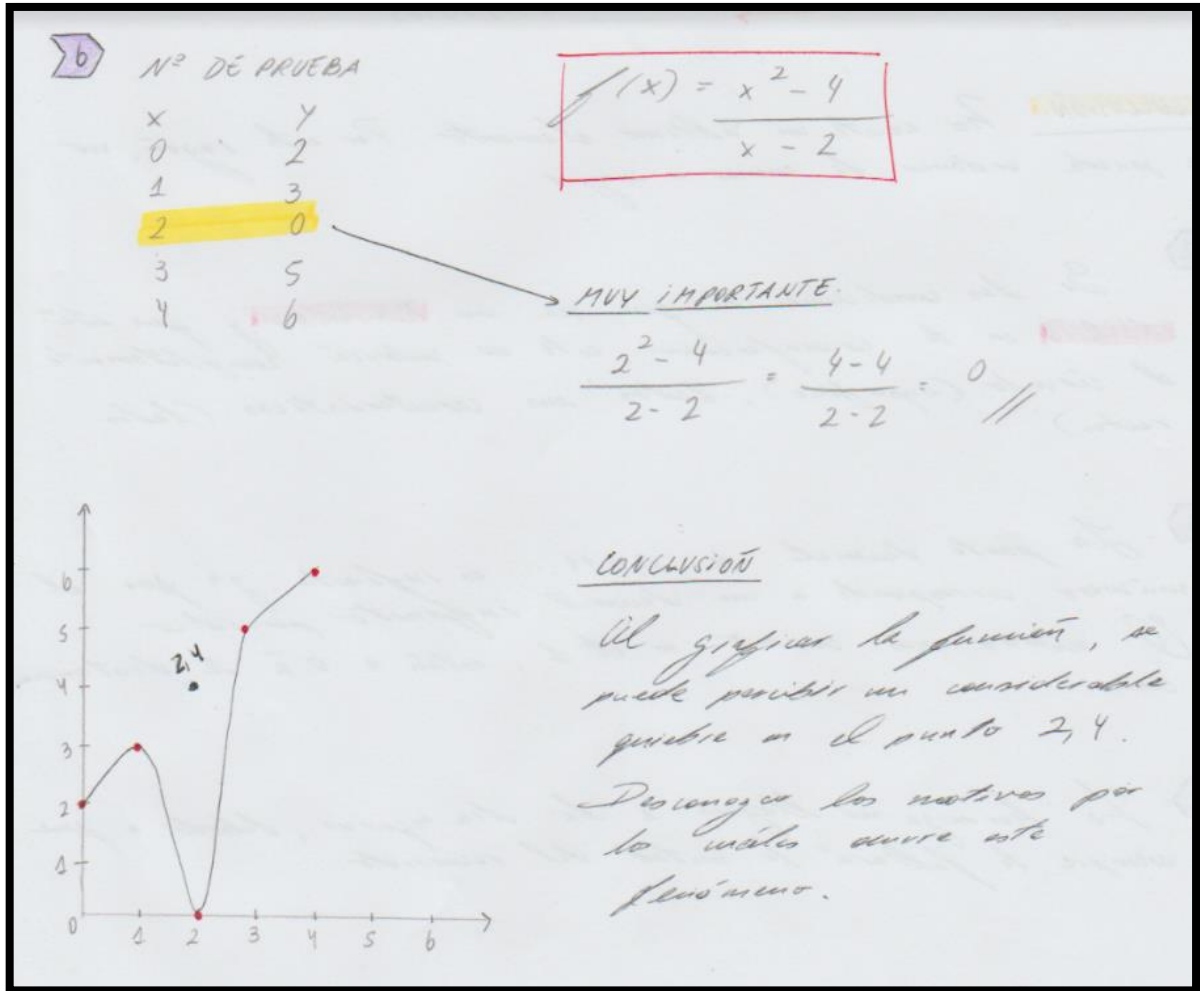 6
Nº DE PRUEBA
x y
0 2
1 3
2 0
3 5
4 6
f(x) = x² - 4 / x - 2
MUY IMPORTANTE.
2² - 4 / 2 - 2 = 4 - 4 / 2 - 2 = 0 //
6
5
4
3
2
1
0 1 2 3 4 5 6
2,4
CONCLUSIÓN
Al graficar la función, se
puede percibir un considerable
quiebre en el punto 2,4.
Desconozco los motivos por
los cuáles ocurre este
fenómeno.